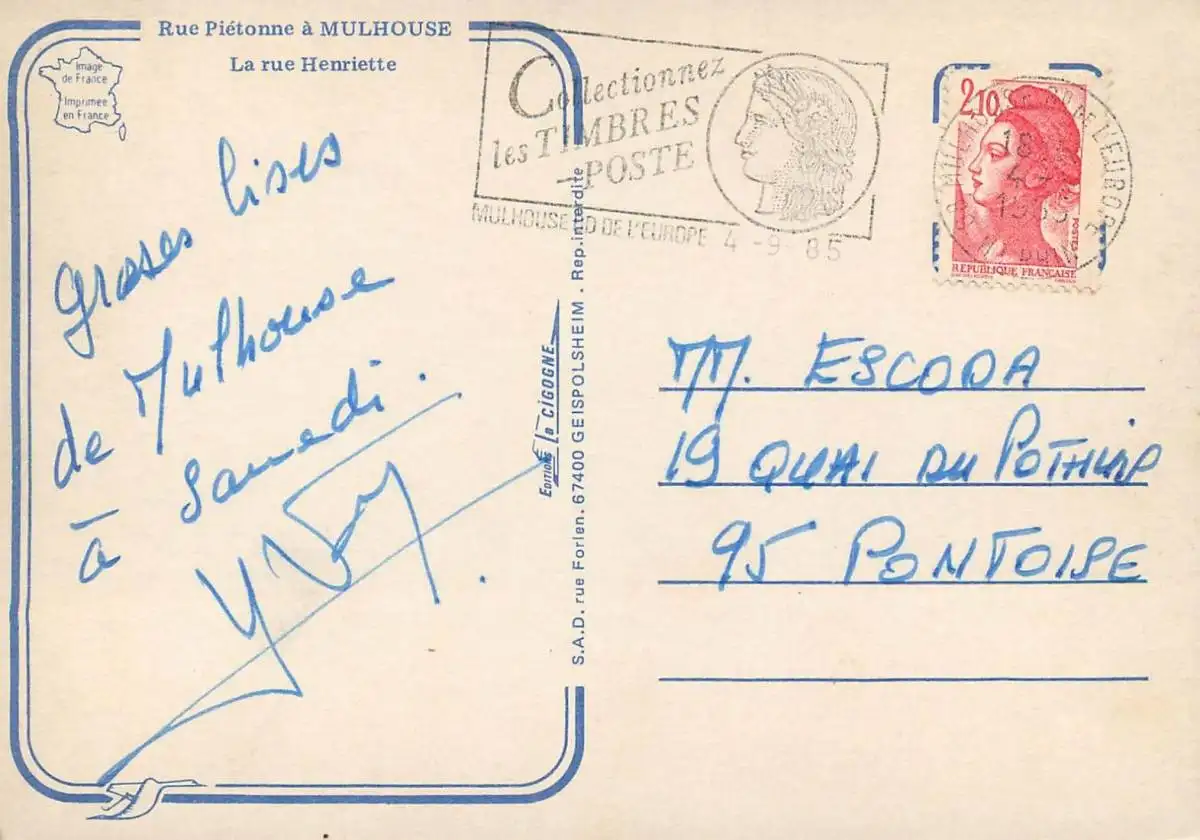 Rue Piétonne à MULHOUSE
La rue Henriette
Image
de France
Imprimée
en France
Groses bises
de Mulhouse
à Samedi.
Collectionnez
les TIMBRES
-POSTE
MULHOUSE RD DE L'EUROPE 4 -9 85
2,10
18
4-9
1985
POSTES
REPUBLIQUE FRANÇAISE
EDITIONS la CIGOGNE
S.A.D. rue Forlen. 67400 GEISPOLSHEIM. Rep.interdite
M. ESCODA
19 QUAI DU POTHUIS
95 PONTOISE